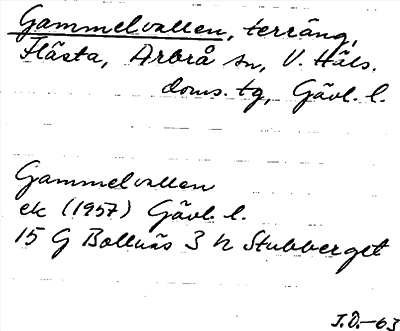 Gammelvallen, terräng,
Flästa, Arbrå sn, V. Häls.
doms. tg, Gävl. l.
Gammelvallen
ek (1957) Gävl. l.
15 G Bollnäs 3 h Stubberget
J.O.-63